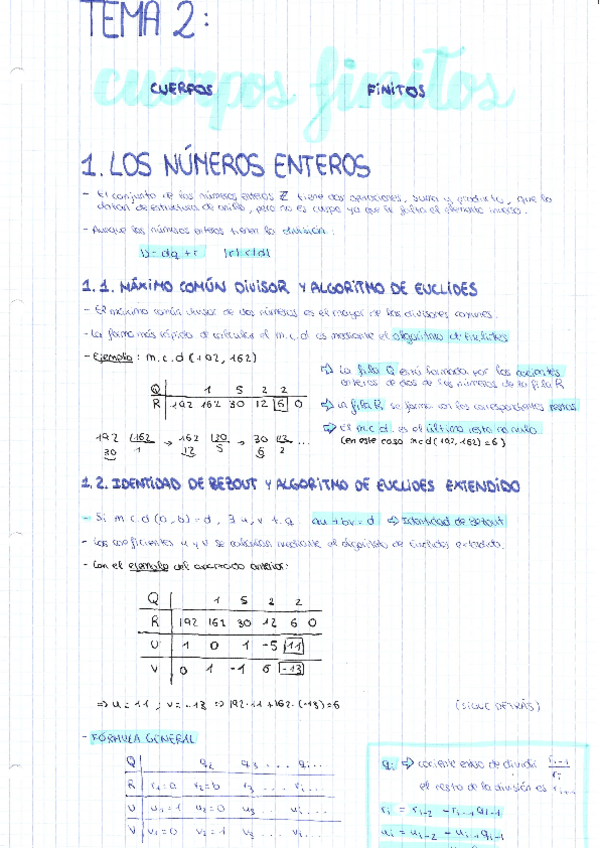 TEMA 2:
cuerpos finitos
CUERPOS FINITOS
1. LOS NÚMEROS ENTEROS
- El conjunto de los números enteros Z tiene dos operaciones, suma y producto, que lo
dotan de estructura de anillo, pero no es cuerpo ya que le falta el elemento inverso.
- Aunque los números enteros tienen la división:
D = dq + r |r| < |d|
1.1. MÁXIMO COMÚN DIVISOR Y ALGORITMO DE EUCLIDES
- El máximo común divisor de dos números es el mayor de los divisores comunes.
- La forma más rápida de calcular el m.c.d es mediante el algoritmo de Euclides
- Ejemplo: m.c.d (192, 162)
⇒ La fila Q está formada por los cocientes
enteros de dos de los números de la fila R
Q 1 5 2 2
R 192 162 30 12 6 0
⇒ La fila R se forma con los correspondientes restos
⇒ El m.c.d. es el último resto no nulo
(en este caso mcd(192,162)=6)
192 162 → 162 30 → 30 12 ...
30 1 12 5 6 2
1.2. IDENTIDAD DE BEZOUT Y ALGORITMO DE EUCLIDES EXTENDIDO
- Si m.c.d (a, b) = d, ∃ u, v t.q. au + bv = d ⇒ Identidad de Bezout
- Los coeficientes u y v se calculan mediante el algoritmo de Euclides extendido.
- Con el ejemplo del apartado anterior:
Q 1 5 2 2
R 192 162 30 12 6 0
U 1 0 1 -5 11
V 0 1 -1 6 -13
⇒ u = 11 ; v = -13 ⇒ 192·11 + 162·(-13) = 6
(SIGUE DETRÁS)
- FÓRMULA GENERAL
Q q2 q3 ... qi ...
R r1=a r2=b r3 ... ri ...
U u1=1 u2=0 u3 ... ui ...
V v1=0 v2=1 v3 ... vi ...
qi ⇒ cociente entero de dividir ri-1/ri
el resto de la división es ri+1
ri = ri-2 - ri-1 qi-1
ui = ui-2 - ui-1 qi-1